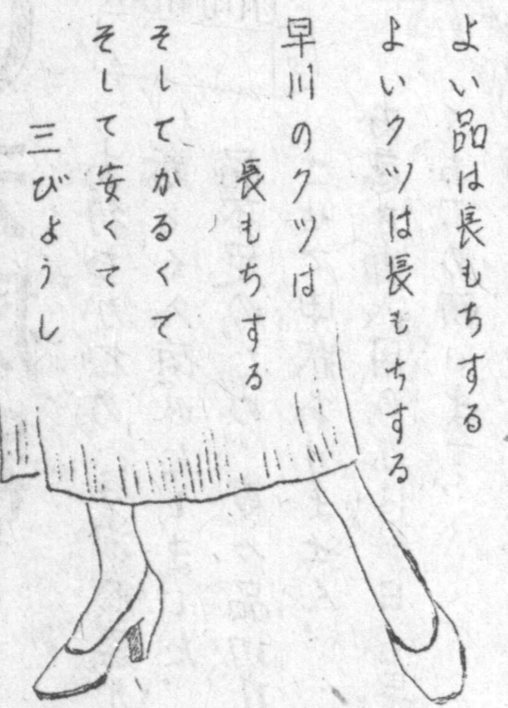 よい品は長もちする
よいクツは長もちする
早川のクツは
長もちする
そしてかるくて
そして安くて
三びょうし